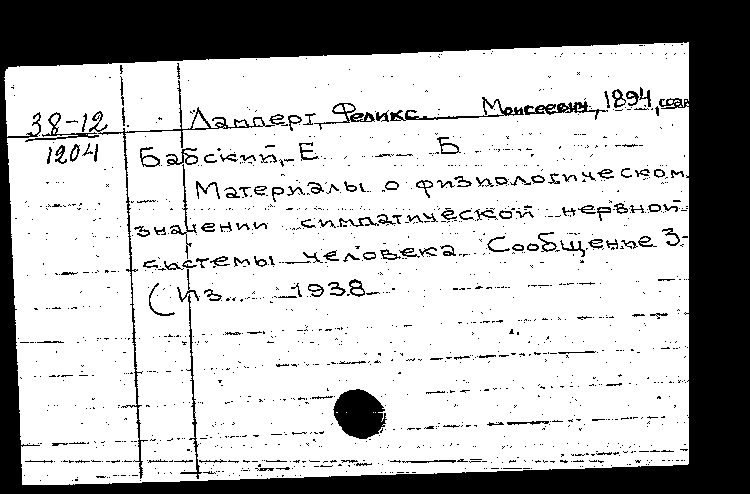 38-12 Ламперт, Феликс Моисеевич, 1894,
1204 Бабский, Е Б
Материалы о физиологическом
значении симпатической нервной
системы человека Сообщение 3-
(Из 1938